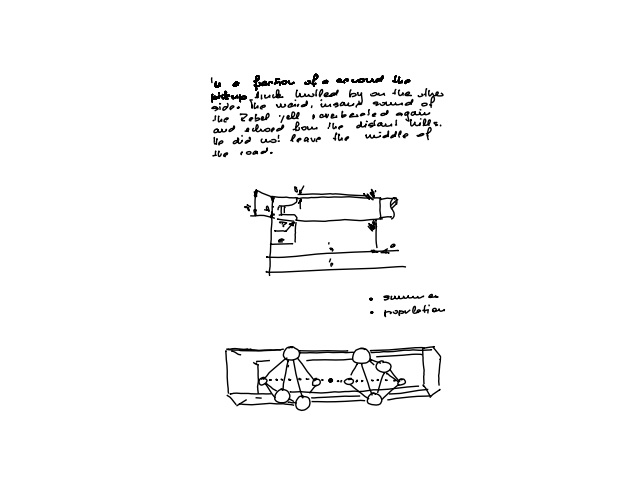 In a fraction of a second the
pickup truck hurtled by on the other
side. The weird, insane sound of
the Rebel yell reverberated again
and echoed from the distant hills.
He did not leave the middle of
the road.
• summer
• population